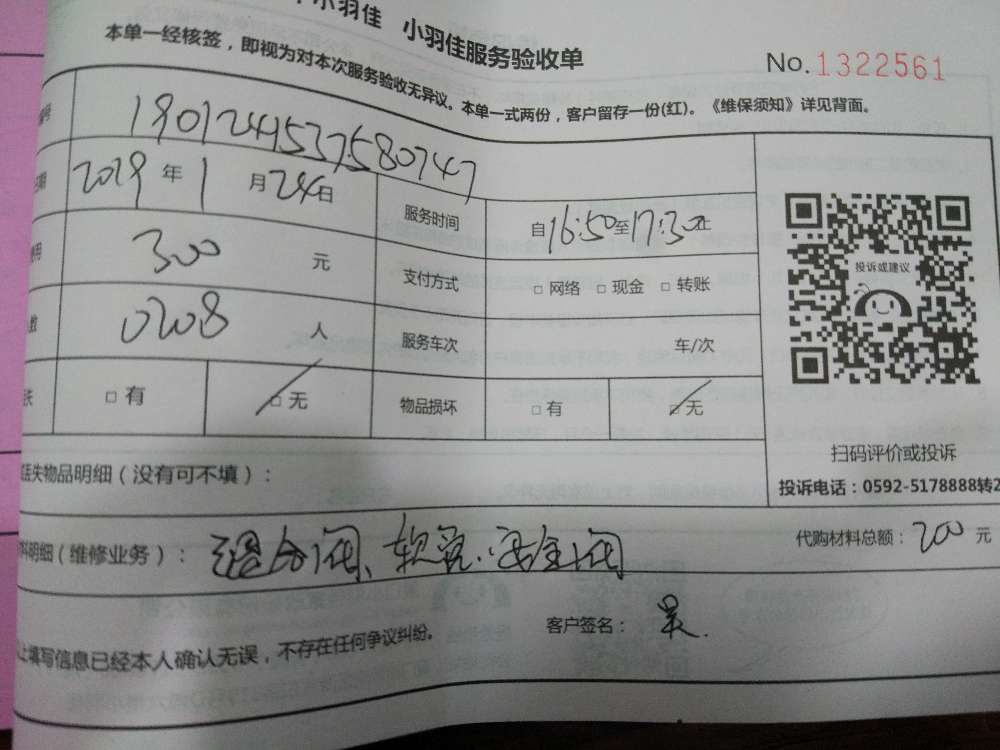 小羽佳 小羽佳服务验收单
No.1322561
本单一经核签，即视为对本次服务验收无异议。本单一式两份，客户留存一份(红)。《维保须知》详见背面。
号 1901241537580747
期 2019年1月24日 服务时间 自16:50至17:30止
用 300 元 支付方式 □ 网络 □ 现金 □ 转账
数 0208 人 服务车次 车/次
失 □ 有 □ 无 物品损坏 □ 有 □ 无
投诉或建议
扫码评价或投诉
投诉电话：0592-5178888转2
丢失物品明细（没有可不填）：
料明细（维修业务）：混合阀、软管、安全阀 代购材料总额：200 元
上填写信息已经本人确认无误，不存在任何争议纠纷。 客户签名：吴